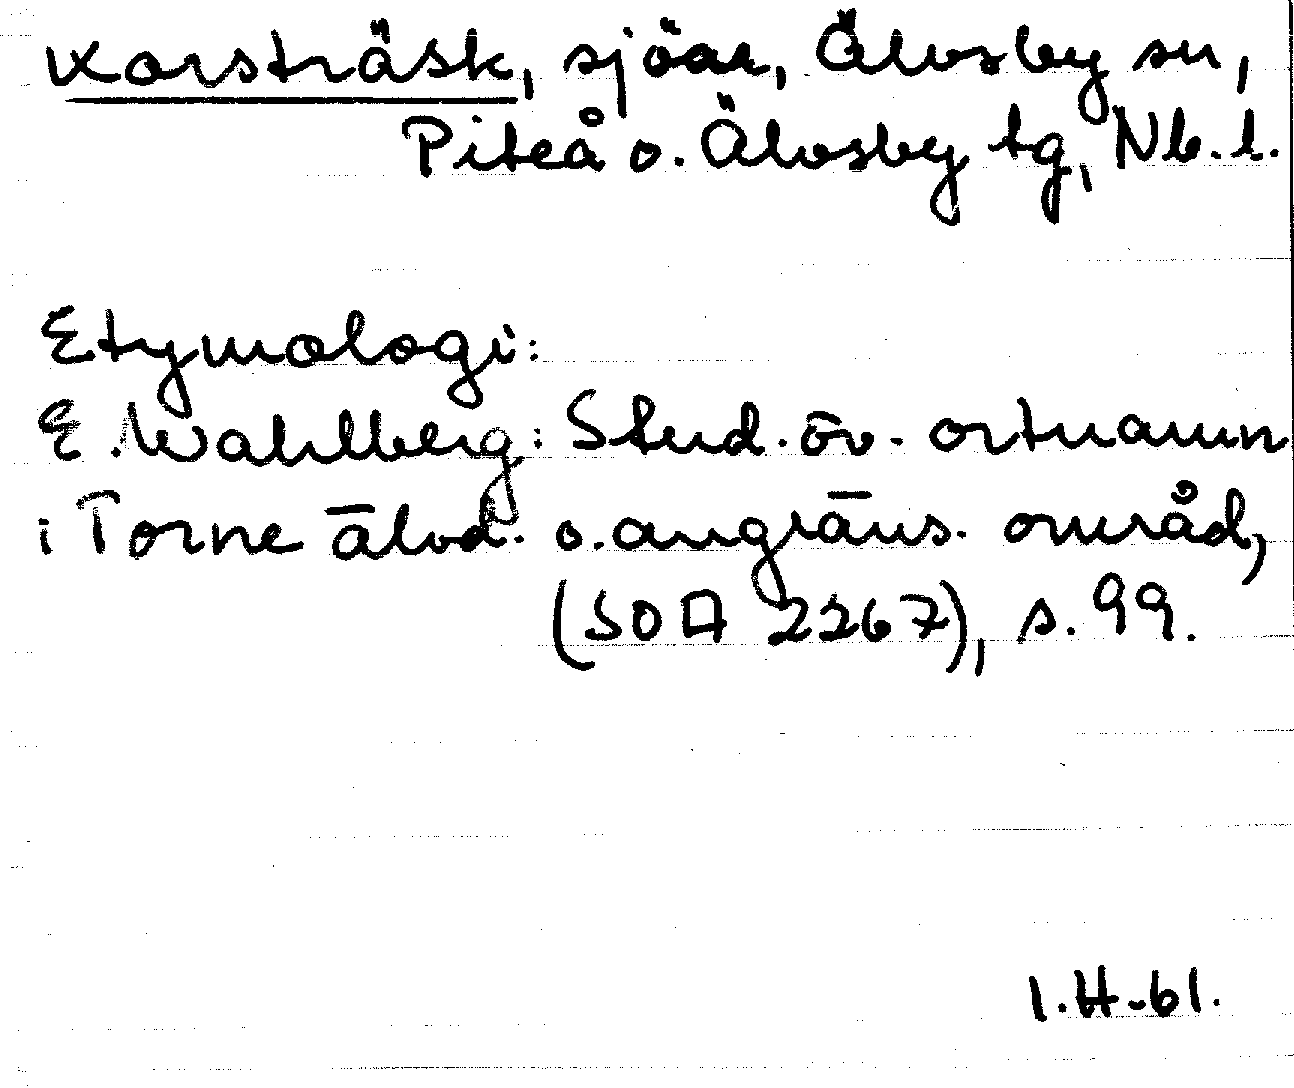 Korsträsk, sjöar, Älvsby sn,
Piteå o. Älvsby tg, Nb. l.
Etymologi:
E. Wahlberg: Stud. öv. ortnamn
i Torne älvd. o. angräns. områd,
(SOA 2267), s. 99.
I.H-61.